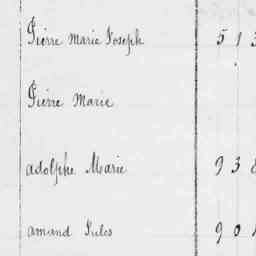 Pierre Marie Joseph 5 1 3
Pierre Marie
adolphe Marie 9 3 8
amand Jules 9 0